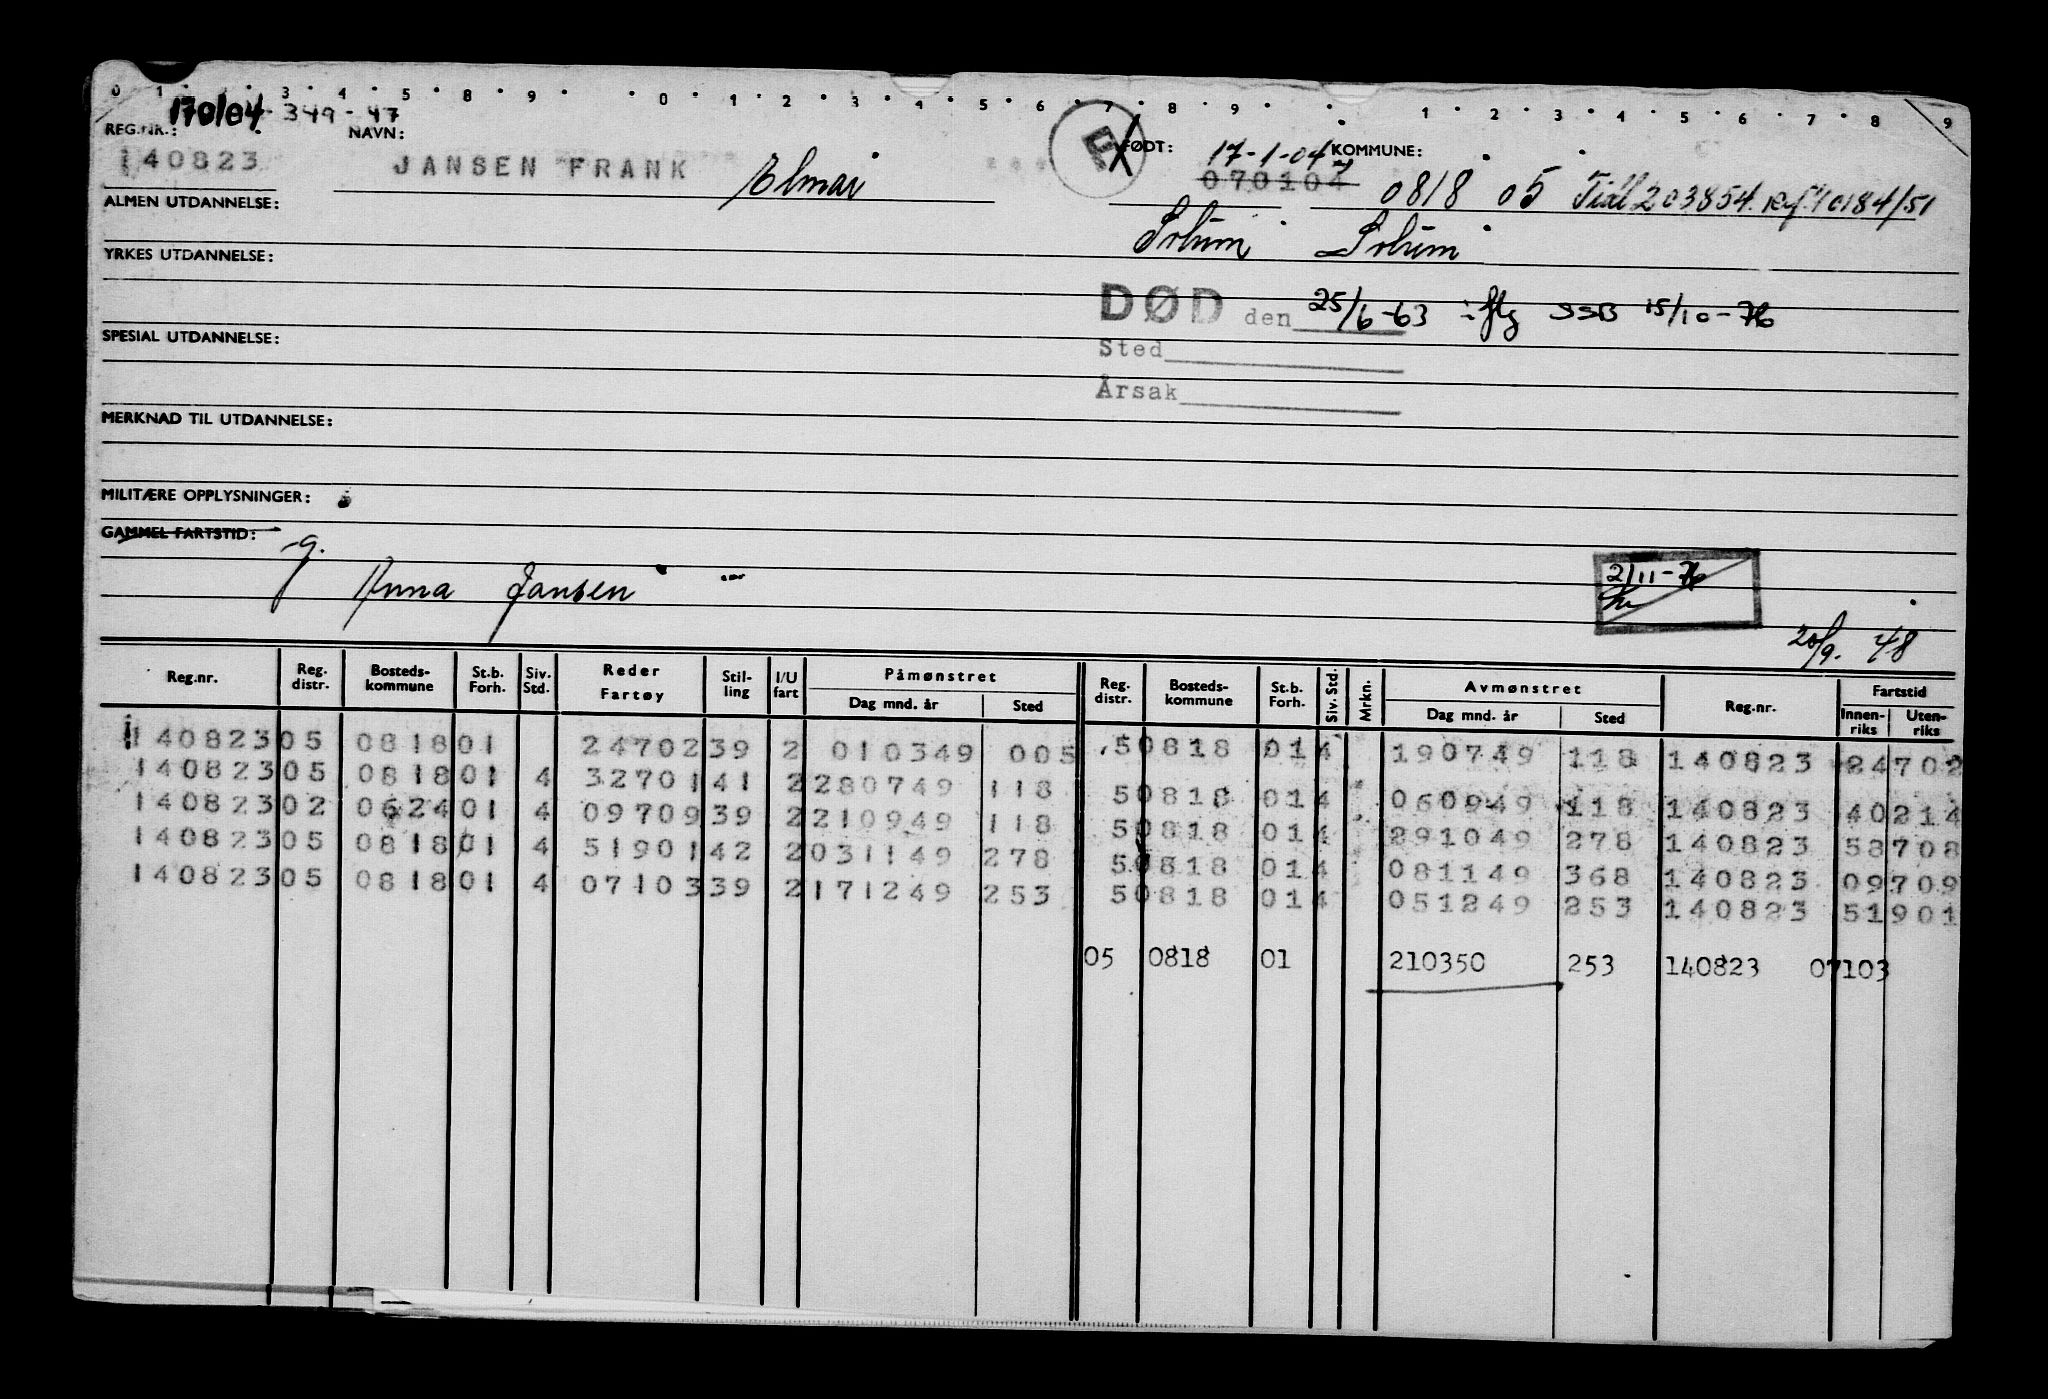 0 1 3 4 5 8 9 0 1 2 3 4 5 6 7 8 9 1 2 3 4 5 6 7 8 9
170104 349-47
REG.NR.: NAVN: F FØDT: 17-1-04 KOMMUNE:
140823 JANSEN FRANK Elmar 070104 0818 05 Tidl 203854. Ref 10184/51
ALMEN UTDANNELSE: Solum Solum
YRKES UTDANNELSE:
DØD den 25/6-63 iflg SSB 15/10-76
SPESIAL UTDANNELSE: Sted
Årsak
MERKNAD TIL UTDANNELSE:
MILITÆRE OPPLYSNINGER:
GAMMEL FARTSTID:
g. Anna Jansen
2/11-76
20/9. 48
Reg.nr. Reg. distr. Bosteds-kommune St.b. Forh. Siv. Std. Reder Fartøy Stil-ling I/U fart Påmønstret Dag mnd. år Sted Reg. distr. Bosteds-kommune St.b. Forh. Siv. Std. Mrkn. Avmønstret Dag mnd. år Sted Reg.nr. Fartstid Innen-riks Uten-riks
140823 05 0818 01 24702 39 2 010349 005 5 0818 01 4 190749 118 140823 24702
140823 05 0818 01 4 32701 41 2 280749 118 5 0818 01 4 060949 118 140823 40214
140823 02 0624 01 4 09709 39 2 210949 118 5 0818 01 4 291049 278 140823 58708
140823 05 0818 01 4 51901 42 2 031149 278 5 0818 01 4 081149 368 140823 09709
140823 05 0818 01 4 07103 39 2 171249 253 5 0818 01 4 051249 253 140823 51901
05 0818 01 210350 253 140823 07103